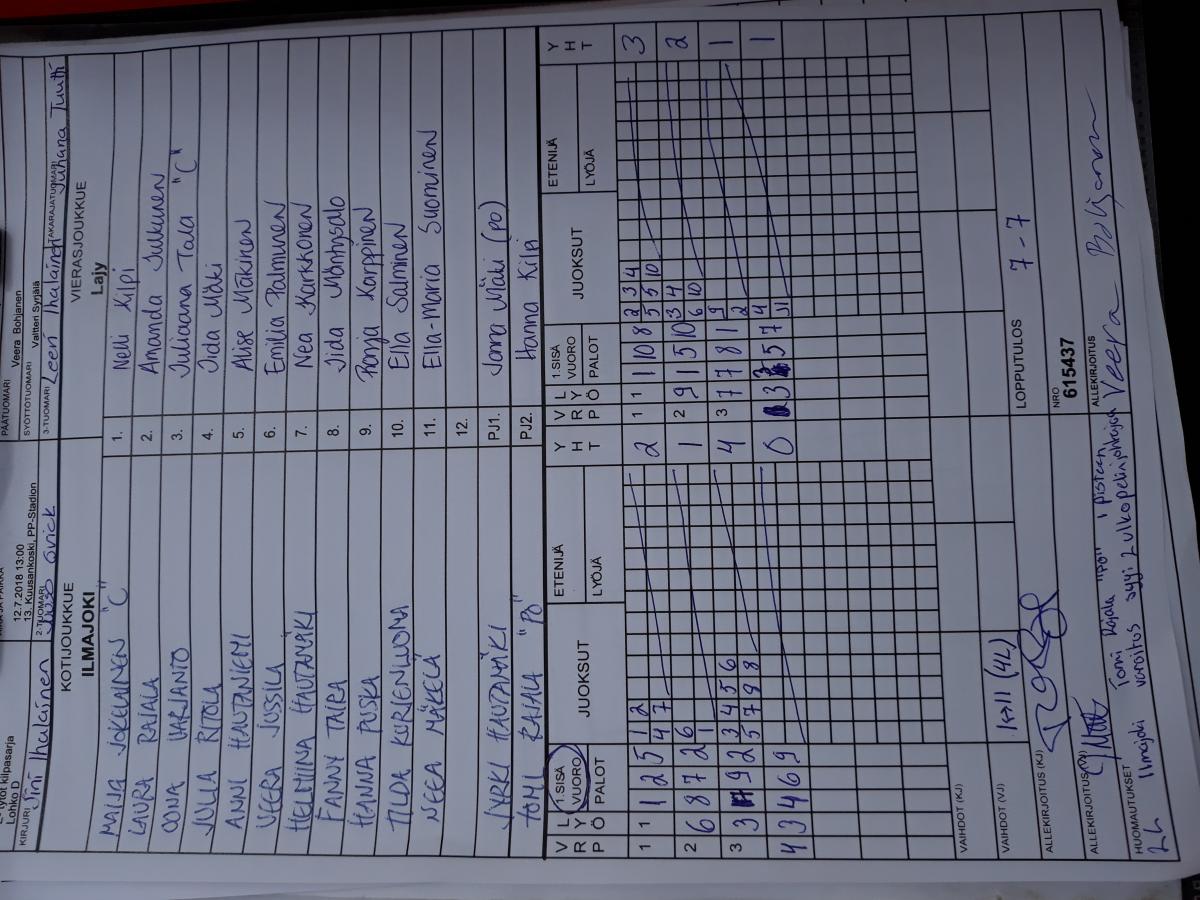 E-tytöt kilpasarja
Lohko D
12.7.2018 13:00
13. Kuusankoski, PP-Stadion
PÄÄTUOMARI Veera Bohjanen
SYÖTTÖTUOMARI Valtteri Syrjälä
KIRJURI Jini Ihalainen 2-TUOMARI 3-TUOMARI Leeni Ihalainen TAKARAJATUOMARI Juhana Tuutti
KOTIJOUKKUE
ILMAJOKI
MAIJA JOKELAINEN "C"
LAURA RAJALA
OONA VARJANTO
JULIA RITOLA
ANNI HAUTANIEMI
VEERA JUSSILA
HELMIINA HAUTAMÄKI
FANNY TAIPA
HANNA PUSKA
TILDA KURJENLUOMA
NEEA MÄKELÄ
JYRKI HAUTAMÄKI
TOMI RAJALA "PO"
VIERASJOUKKUE
Lajy
1. Nelli Kilpi
2. Amanda Julkunen
3. Juliaana Tala "C"
4. Iida Mäki
5. Alise Mäkinen
6. Emilia Palmunen
7. Nea Karkkonen
8. Iida Mäntysalo
9. Ronja Karppinen
10. Ella Salminen
11. Ella-Maria Suominen
12.
PJ1. Jonna Mäki (po)
PJ2. Hanna Kilpi
VRP LYÖ 1.SISÄ VUORO PALOT JUOKSUT ETENIJÄ LYÖJÄ YHT
1 1 1 2 5 1 2 2
4 7
2 6 8 7 2 6 1
1
3 3 9 2 3 4 5 6 4
5 7 9 8
4 3 4 6 9 0
VRP LYÖ 1.SISÄ VUORO PALOT JUOKSUT ETENIJÄ LYÖJÄ YHT
1 1 1 10 8 2 3 4 3
5 5 10
2 9 1 5 10 3 4 2
6 10
3 7 7 8 1 9 1
2
3 3 5 7 4 1
11
VAIHDOT (KJ)
VAIHDOT (VJ) 1<->11 (4L)
LOPPUTULOS 7-7
ALLEKIRJOITUS (KJ)
NRO
615437
ALLEKIRJOITUS (VJ)
ALLEKIRJOITUS Veera Bohjanen
HUOMAUTUKSET Tomi Rajala "PO" 1 pisteen
2L Ilmajoki varoitus syy: 2 ulkopelinjohtajaa